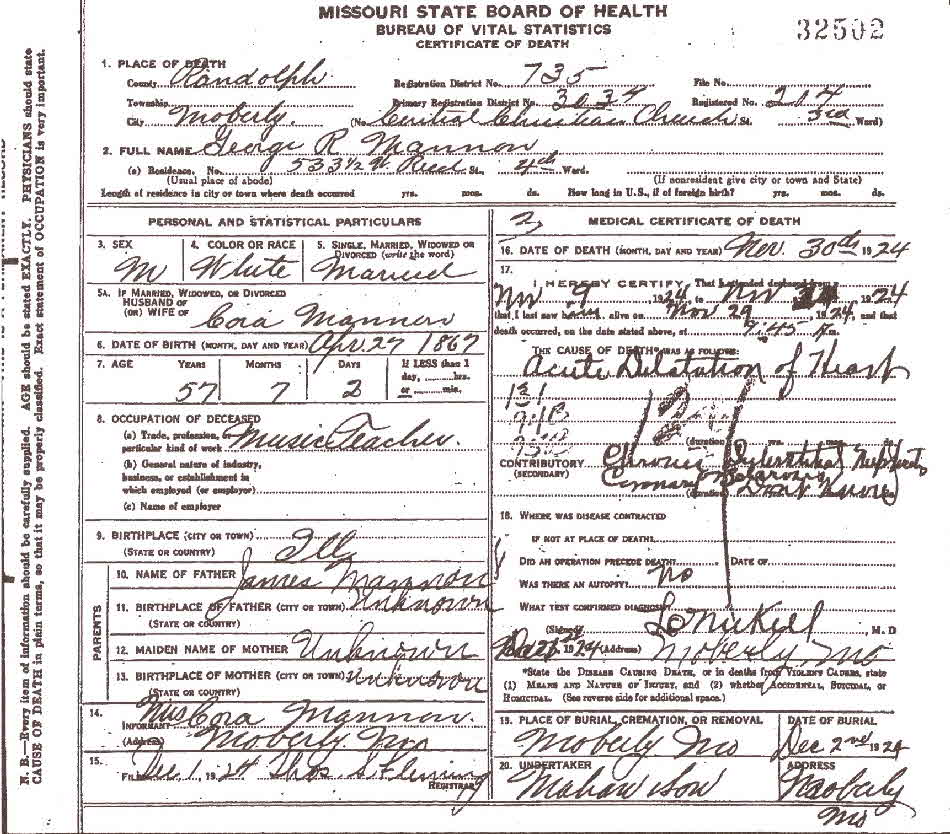 MISSOURI STATE BOARD OF HEALTH
BUREAU OF VITAL STATISTICS
CERTIFICATE OF DEATH
32502
1. PLACE OF DEATH
County Randolph Registration District No. 735 File No.
Township Primary Registration District No. 3034 Registered No. 204
City Moberly. (No. Central Christian Church St. 3rd Ward)
2. FULL NAME George R Mannon
(a) Residence. No. 533 1/2 W. Reed St., 4th Ward.
(Usual place of abode) (If nonresident give city or town and State)
Length of residence in city or town where death occurred yrs. mos. ds. How long in U.S., if of foreign birth? yrs. mos. ds.
PERSONAL AND STATISTICAL PARTICULARS
3. SEX
M
4. COLOR OR RACE
White
5. SINGLE, MARRIED, WIDOWED OR
DIVORCED (write the word)
Married
5A. IF MARRIED, WIDOWED, OR DIVORCED
HUSBAND OF
(OR) WIFE OF
Cora Mannon
6. DATE OF BIRTH (MONTH, DAY AND YEAR) Apr. 27 1867
7. AGE YEARS MONTHS DAYS If LESS than 1
day, ........hrs.
or ........min.
57 7 3
8. OCCUPATION OF DECEASED
(a) Trade, profession, or
particular kind of work Music Teacher.
(b) General nature of industry,
business, or establishment in
which employed (or employer)
(c) Name of employer
9. BIRTHPLACE (CITY OR TOWN)
(STATE OR COUNTRY) Ill
PARENTS
10. NAME OF FATHER James Mannon
11. BIRTHPLACE OF FATHER (CITY OR TOWN) Unknown
(STATE OR COUNTRY)
12. MAIDEN NAME OF MOTHER Unknown
13. BIRTHPLACE OF MOTHER (CITY OR TOWN) Unknown
(STATE OR COUNTRY)
14.
INFORMANT Mrs Cora Mannon.
(Address) Moberly. Mo
15.
FILED Dec 1, 1924 Thos S Fleming
REGISTRAR
3
MEDICAL CERTIFICATE OF DEATH
16. DATE OF DEATH (MONTH, DAY AND YEAR) Nov. 30th 1924
17.
I HEREBY CERTIFY, That I attended deceased from
Nov 9 1924, to Nov 1924
that I last saw him alive on Nov 29, 1924, and that
death occurred, on the date stated above, at 9:45 m.
THE CAUSE OF DEATH* WAS AS FOLLOWS:
Acute Dilatation of Heart
131
(duration) yrs. mos.
CONTRIBUTORY
(SECONDARY)
Chronic Interstitial Nephritis
Coronary Sclerosis
(duration) Dont Know
18. WHERE WAS DISEASE CONTRACTED
IF NOT AT PLACE OF DEATH
DID AN OPERATION PRECEDE DEATH? DATE OF
WAS THERE AN AUTOPSY? No
WHAT TEST CONFIRMED DIAGNOSIS
(Signed) , M. D
1924 (Address) Moberly Mo
*State the DISEASE CAUSING DEATH, or in deaths from VIOLENT CAUSES, state
(1) MEANS AND NATURE OF INJURY, and (2) whether ACCIDENTAL, SUICIDAL, or
HOMICIDAL. (See reverse side for additional space.)
19. PLACE OF BURIAL, CREMATION, OR REMOVAL
Moberly Mo
DATE OF BURIAL
Dec 2nd 1924
20. UNDERTAKER
Mahan & Son
ADDRESS
Moberly
Mo
N. B.—Every item of information should be carefully supplied. AGE should be stated EXACTLY. PHYSICIANS should state
CAUSE OF DEATH in plain terms, so that it may be properly classified. Exact statement of OCCUPATION is very important.